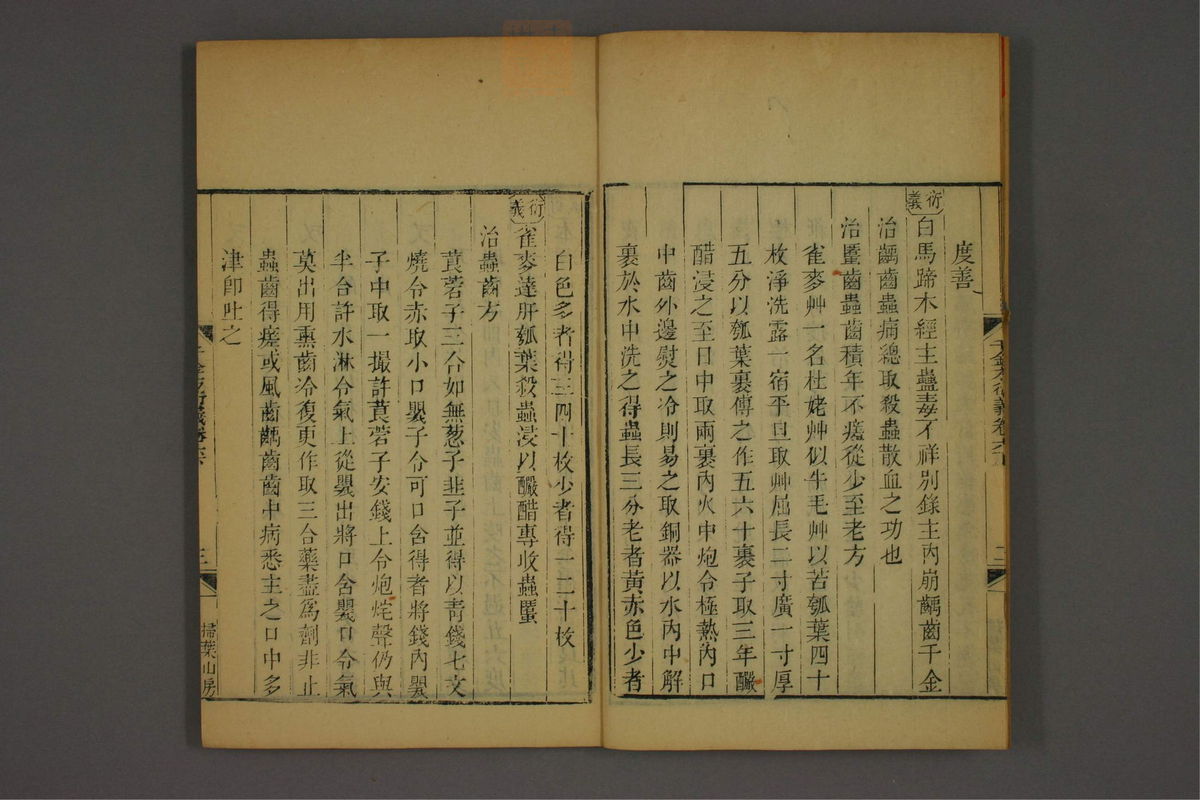 度善
衍義
白馬蹄本經主蠱毒不祥別錄主內崩齲齒千金
治齲齒蟲痛總取殺蟲散血之功也
治䘌齒蟲齒積年不瘥從少至老方
雀麥艸一名杜姥艸似牛毛艸以苦瓠葉四十
枚淨洗露一宿平旦取艸屈長二寸廣一寸厚
五分以瓠葉裹傅之作五六十裹子取三年釅
醋浸之至日中取兩裹內火中炮令極熱內口
中齒外邊熨之冷則易之取銅器以水內中解
裹於水中洗之得蟲長三分老者黃赤色少者
白色多者得三四十枚少者得一二十枚
衍義
雀麥達肝瓠葉殺蟲浸以釅醋專收蟲䘌
治蟲齒方
莨菪子三合如無葱子韭子並得以靑錢七文
燒令赤取小口甖子令可口含得者將錢內甖
子中取一撮許莨菪子安錢上令炮烢聲仍與
半合許水淋令氣上從甖出將口含甖口令氣
莫出用熏齒冷復更作取三合藥盡爲劑非止
蟲齒得瘥或風齒齲齒齒中病悉主之口中多
津卽吐之
千金方衍義卷六下
三
掃葉山房